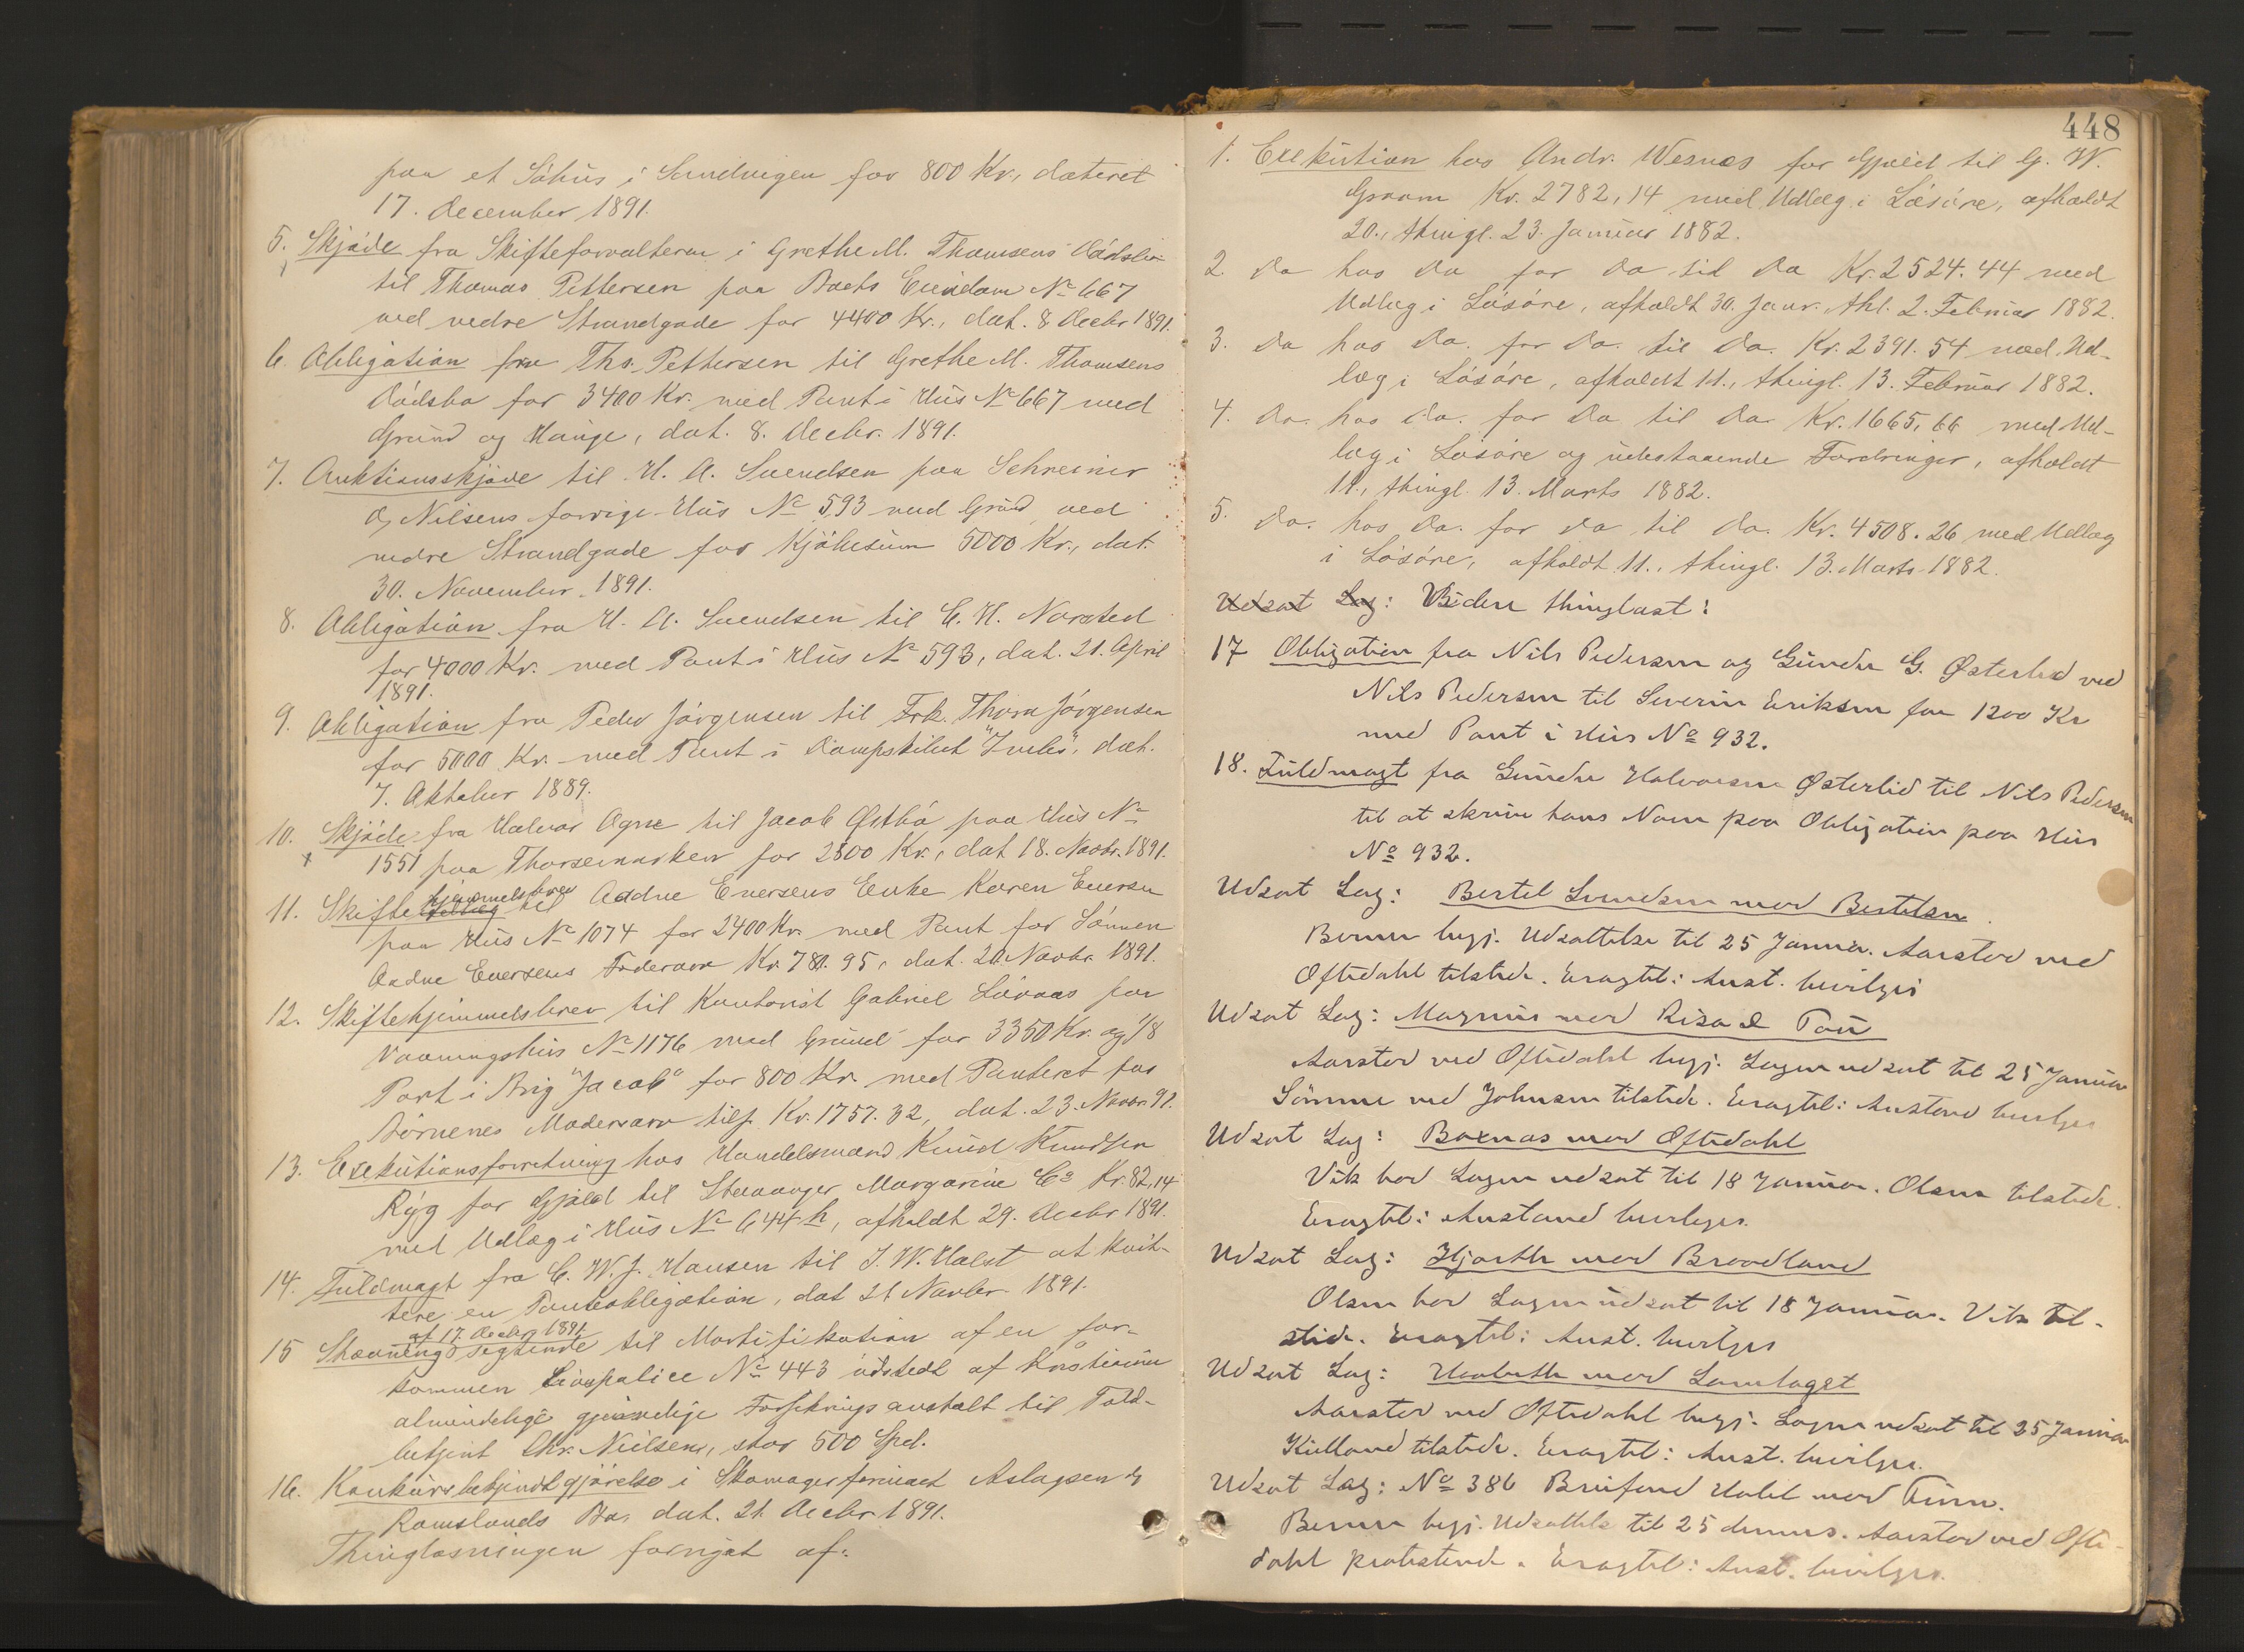 paa et Söhus i Sandvigen for 800 Kr., dateret
17. December 1891.
5. Skjöde fra Skifteforvalteren i Grethe M. Thomsens Dödsbo
til Thomas Pettersen paa Boets Eiendom No 667
ved nedre Strandgade for 4400 Kr., dat. 8 Decbr 1891.
6. Obligation fra Ths. Pettersen til Grethe M. Thomsens
Dödsbo for 3400 Kr. med Pant i Hus No 667 med
Grund og Hauge, dat. 8. Decbr. 1891.
7. Auktionsskjöde til H. A. Svendsen paa Schreiner
og Nilsens forrige Hus No 593 med Grund ved
nedre Strandgade for Kjöbesum 5000 Kr., dat.
30. November 1891.
8. Obligation fra H. A. Svendsen til C. H. Norsted
for 4000 Kr. med Pant i Hus No 593, dat. 21. April
1891.
9. Obligation fra Peder Jörgensen til Frk. Thora Jörgensen
for 5000 Kr. med Pant i Dampskibet dat.
7. Oktober 1889.
10. Skjöde fra Halvor Ogne til Jacob Østbö paa Hus No
1551 paa for 2500 Kr., dat 18. Novbr. 1891.
11. Skiftehjemmelsbrev til Aadne Eversens Enke Karen Eversen
paa Hus No 1074 for 2400 Kr. med Pant for Sönnen
Aadne Eversens Fadersarv Kr. 780.95, dat. 20 Novbr. 1891.
12. Skiftehjemmelsbrev til Kontorist Gabriel Lövaas paa
Vaaningshus No 1176 med Grund for 3350 Kr. og 1/8
Part i Brig "Jacob" for 800 Kr. med Panteret for
Börnenes Mödrearv tils. Kr. 1757.32, dat. 23. Novbr. 91.
13. Exekutionsforretning hos Handelsmand Knud Knudsen
Ryg for Gjæld til Stavanger Margarine Co Kr. 82,14
med Udlæg i Hus No 644 b, afholdt 29. Decbr 1891.
14. Fuldmagt fra C. W. J. Hansen til J. W. Holst at kvit-
tere en Panteobligation, dat 21 Novbr. 1891.
af 17. Decbr 1891
15 Stævning Tegtende til Mortifikation af en for-
kommen Livspolice No 443 udstedt af Kristiania
almindelige gjensidige Forsikringsanstalt til Told-
betjent Chr. Nielsen, stor 500 Spd.
16. Konkursbekjendtgjörelse i Skomagerfirmaet Aslagsen &
Ramslands Bo, dat. 21. Decbr 1891.
Thinglæsningen forrigst af:
448
1. Exekution hos Andr. Wesnes for Gjæld til G. W.
Kr. 2782,14 med Udlæg i Lösöre, afholdt
20., thingl. 23. Januar 1882.
2. Do hos Do for Do til Do Kr. 2524.44 med
Udlæg i Lösöre, afholdt 30. Janr. thl. 2. Februar 1882.
3. Do hos Do. for Do. til Do. Kr. 2391.54 med Ud-
læg i Lösöre, afholdt 11., thingl. 13. Februar 1882.
4. Do. hos Do. for Do til Do Kr. 1665,66 med Ud-
læg i Lösöre og udestaaende Fordringer, afholdt
11., thingl. 13. Marts 1882.
5. Do. hos Do. for Do til Do. Kr. 4508.26 med Udlæg
i Lösöre, afholdt 11., thingl. 13. Marts 1882.
Udsat Sag: Videre thinglæst:
17 Obligation fra Nils Pedersen og Gunder G. Østerlid ved
Nils Pedersen til Severin Eriksen for 1200 Kr
med Pant i Hus No 932.
18. Fuldmagt fra Gunder Halvorsen Østerlid til Nils Pedersen
til at skrive hans Navn paa Obligation paa Hus
No 932.
Udsat Sag: Bertel Svendsen mod Bertelsen
Berner begj. Udsættelse til 25 Januar. Aarstad ved
Oftedahl tilstede. Eragtet: Anst. bevilges
Udsat Sag: Magnus mod Risa & Tou
Aarstad ved Oftedahl begj. Sagen udsat til 25 Januar
Sömme ved Johnsen tilstede. Eragtet: Anstand bevilges
Udsat Sag: mod Oftedahl
Vik bad Sagen udsat til 18 Januar. Olsen tilstede.
Eragtet: Anstand bevilges.
Udsat Sag: Hjorth mod Braadland
Olsen bad Sagen udsat til 18 Januar. Vik til-
stede. Eragtet: Anst. bevilges
Udsat Sag: mod Samlaget
Aarstad ved Oftedahl begj. Sagen udsat til 25 Januar
Kielland tilstede. Eragtet: Anst. bevilges.
Udsat Sag: No 386 mod
Berner begj. Udsættelse til 25 dennes. Aarstad ved Ofte-
dahl protesterede. Eragtet: Anst. bevilges.